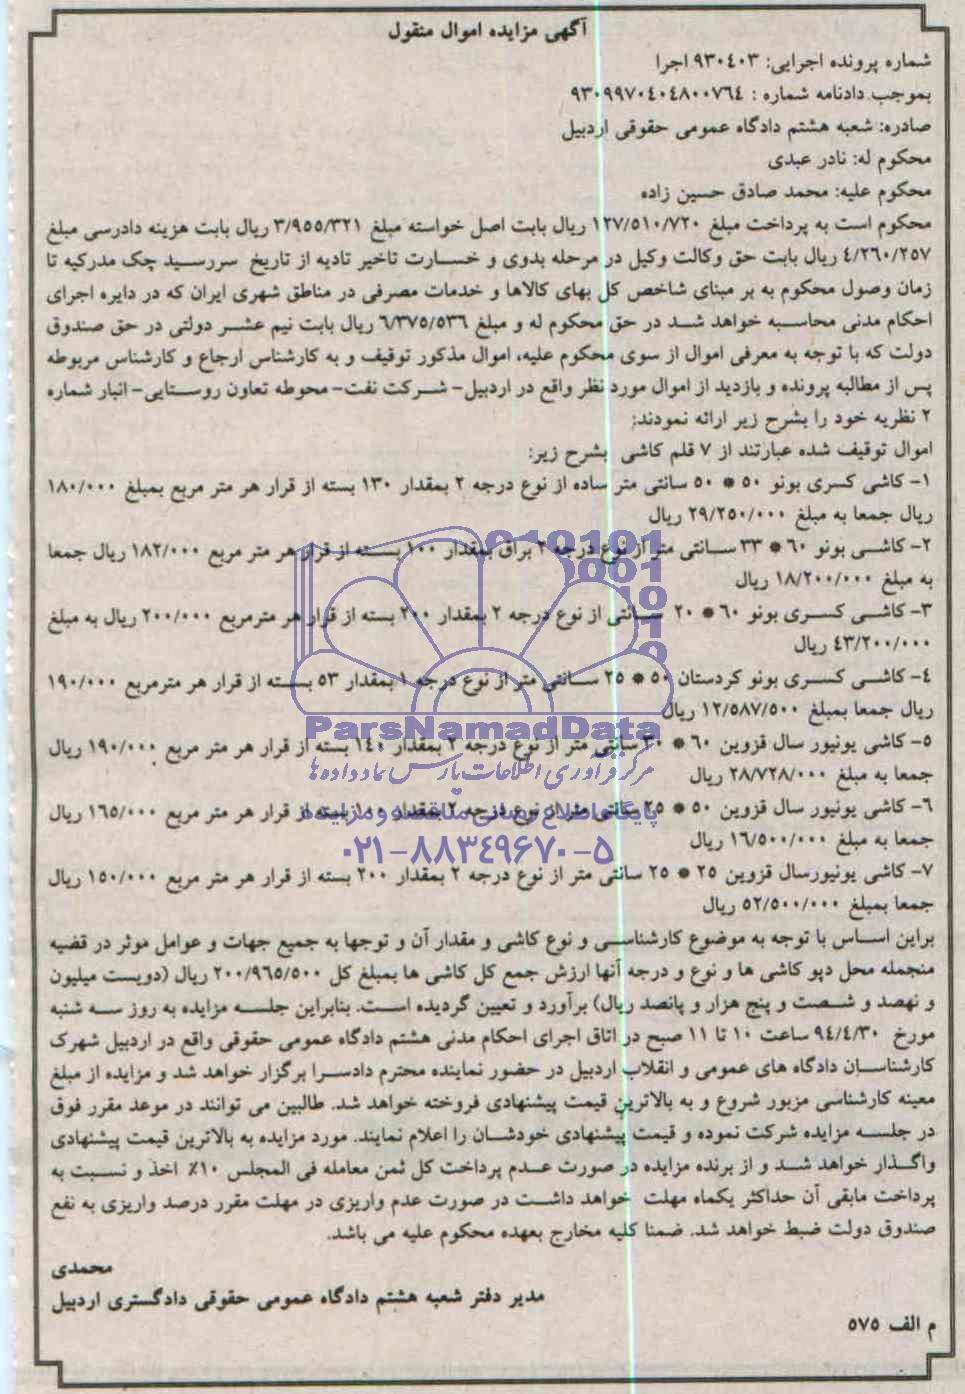 آگهی مزایده اموال منقول
شماره پرونده اجرایی: ۹۳۰٤۰۳ اجرا
بموجب دادنامه شماره : ۹۳۰۹۹۷۰٤۰٤۸۰۰۷٦٤
صادره: شعبه هشتم دادگاه عمومی حقوقی اردبیل
محکوم له: نادر عبدی
محکوم علیه: محمد صادق حسین زاده
محکوم است به پرداخت مبلغ ۱۲۷/۵۱۰/۷۲۰ ریال بابت اصل خواسته مبلغ ۳/۹۵۵/۳۲۱ ریال بابت هزینه دادرسی مبلغ
٤/۲٦۰/۲۵۷ ریال بابت حق وکالت وکیل در مرحله بدوی و خسارت تاخیر تادیه از تاریخ سررسید چک مدرکیه تا
زمان وصول محکوم به بر مبنای شاخص کل بهای کالاها و خدمات مصرفی در مناطق شهری ایران که در دایره اجرای
احکام مدنی محاسبه خواهد شد در حق محکوم له و مبلغ ٦/۳۷۵/۵۳٦ ریال بابت نیم عشر دولتی در حق صندوق
دولت که با توجه به معرفی اموال از سوی محکوم علیه، اموال مذکور توقیف و به کارشناس ارجاع و کارشناس مربوطه
پس از مطالبه پرونده و بازدید از اموال مورد نظر واقع در اردبیل- شرکت نفت- محوطه تعاون روستایی- انبار شماره
۲ نظریه خود را بشرح زیر ارائه نمودند:
اموال توقیف شده عبارتند از ۷ قلم کاشی بشرح زیر:
۱- کاشی کسری بونو ۵۰ * ۵۰ سانتی متر ساده از نوع درجه ۲ بمقدار ۱۳۰ بسته از قرار هر متر مربع بمبلغ ۱۸۰/۰۰۰
ریال جمعا به مبلغ ۲۹/۲۵۰/۰۰۰ ریال
۲- کاشی بونو ٦۰ * ۳۳ سانتی متر از نوع درجه ۲ براق بمقدار ۱۰۰ بسته از قرار هر متر مربع ۱۸۲/۰۰۰ ریال جمعا
به مبلغ ۱۸/۲۰۰/۰۰۰ ریال
۳- کاشی کسری بونو ٦۰ * ۲۰ سانتی از نوع درجه ۲ بمقدار ۲۰۰ بسته از قرار هر مترمربع ۲۰۰/۰۰۰ ریال به مبلغ
٤۳/۲۰۰/۰۰۰ ریال
٤- کاشی کسری بونو کردستان ۵۰ * ۲۵ سانتی متر از نوع درجه ۱ بمقدار ۵۳ بسته از قرار هر مترمربع ۱۹۰/۰۰۰
ریال جمعا بمبلغ ۱۲/۵۸۷/۵۰۰ ریال
ParsNamadData
۵- کاشی یونیور سال قزوین ٦۰ * ۳۰ سانتی متر از نوع درجه ۲ بمقدار ۱٤۰ بسته از قرار هر متر مربع ۱۹۰/۰۰۰ ریال
جمعا به مبلغ ۲۸/۷۲۸/۰۰۰ ریال
مرکز فرآوری اطلاعات پارس نماد داده ها
٦- کاشی یونیور سال قزوین ۵۰ * ۲۵ سانتی متر از نوع درجه ۲ بمقدار ۱۰۰ بسته از قرار هر متر مربع ۱٦۵/۰۰۰ ریال
پایگاه اطلاع رسانی مناقصه و مزایده
جمعا به مبلغ ۱٦/۵۰۰/۰۰۰ ریال
۰۲۱-۸۸۳٤۹٦۷۰-۵
۷- کاشی یونیورسال قزوین ۲۵ * ۲۵ سانتی متر از نوع درجه ۲ بمقدار ۲۰۰ بسته از قرار هر متر مربع ۱۵۰/۰۰۰ ریال
جمعا بمبلغ ۵۲/۵۰۰/۰۰۰ ریال
براین اساس با توجه به موضوع کارشناسی و نوع کاشی و مقدار آن و توجها به جمیع جهات و عوامل موثر در قضیه
منجمله محل دپو کاشی ها و نوع و درجه آنها ارزش جمع کل کاشی ها بمبلغ کل ۲۰۰/۹٦۵/۵۰۰ ریال (دویست میلیون
و نهصد و شصت و پنج هزار و پانصد ریال) برآورد و تعیین گردیده است. بنابراین جلسه مزایده به روز سه شنبه
مورخ ۹٤/٤/۳۰ ساعت ۱۰ تا ۱۱ صبح در اتاق اجرای احکام مدنی هشتم دادگاه عمومی حقوقی واقع در اردبیل شهرک
کارشناسان دادگاه های عمومی و انقلاب اردبیل در حضور نماینده محترم دادسرا برگزار خواهد شد و مزایده از مبلغ
معینه کارشناسی مزبور شروع و به بالاترین قیمت پیشنهادی فروخته خواهد شد. طالبین می توانند در موعد مقرر فوق
در جلسه مزایده شرکت نموده و قیمت پیشنهادی خودشان را اعلام نمایند. مورد مزایده به بالاترین قیمت پیشنهادی
واگذار خواهد شد و از برنده مزایده در صورت عدم پرداخت کل ثمن معامله فی المجلس ۱۰٪ اخذ و نسبت به
پرداخت مابقی آن حداکثر یکماه مهلت خواهد داشت در صورت عدم واریزی در مهلت مقرر درصد واریزی به نفع
صندوق دولت ضبط خواهد شد. ضمنا کلیه مخارج بعهده محکوم علیه می باشد.
محمدی
مدیر دفتر شعبه هشتم دادگاه عمومی حقوقی دادگستری اردبیل
م الف ۵۷۵